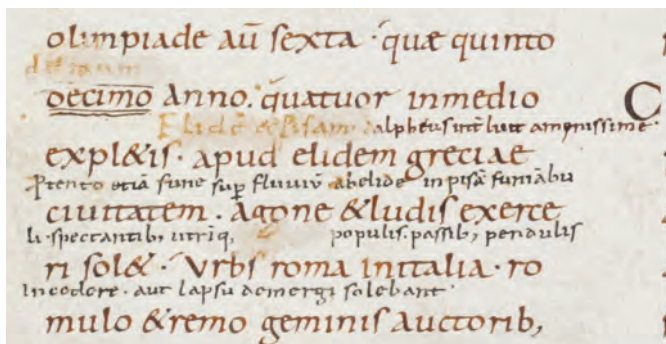 olimpiade aū sexta · quæ quinto
decimo anno · quatuor inmedio
Elidē & pisam alpheus int̄ luit amenissime ·
expl&is · apud elidem greciae
Ptento etiā fune sup̄ fluviū abelide inpisā funābu
civitatem · agone &ludis exerce
li · spectantib, utriq, populis · passib, pendulis
ri sol& · Urbs roma initalia · ro
incedere · aut lapsu demergi solebant ·
mulo &remo geminis auctorib,
C